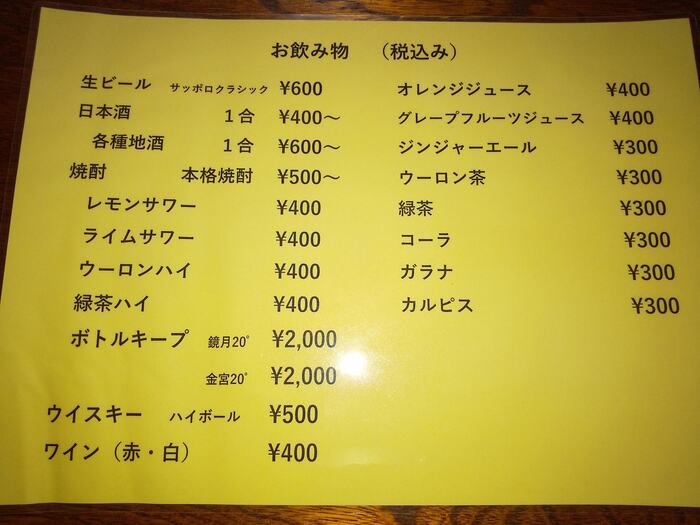 お飲み物 （税込み）
生ビール サッポロクラシック ¥600
日本酒 1合 ¥400～
各種地酒 1合 ¥600～
焼酎 本格焼酎 ¥500～
レモンサワー ¥400
ライムサワー ¥400
ウーロンハイ ¥400
緑茶ハイ ¥400
ボトルキープ 鏡月20° ¥2,000
金宮20° ¥2,000
ウイスキー ハイボール ¥500
ワイン（赤・白） ¥400
オレンジジュース ¥400
グレープフルーツジュース ¥400
ジンジャーエール ¥300
ウーロン茶 ¥300
緑茶 ¥300
コーラ ¥300
ガラナ ¥300
カルピス ¥300